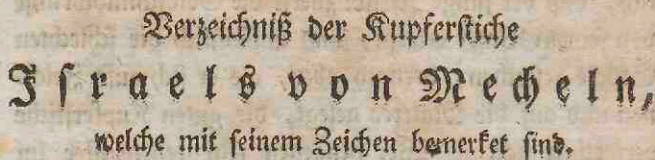 Verzeichniß der Kupferstiche
Israels von Mecheln,
welche mit seinem Zeichen bemerket sind.